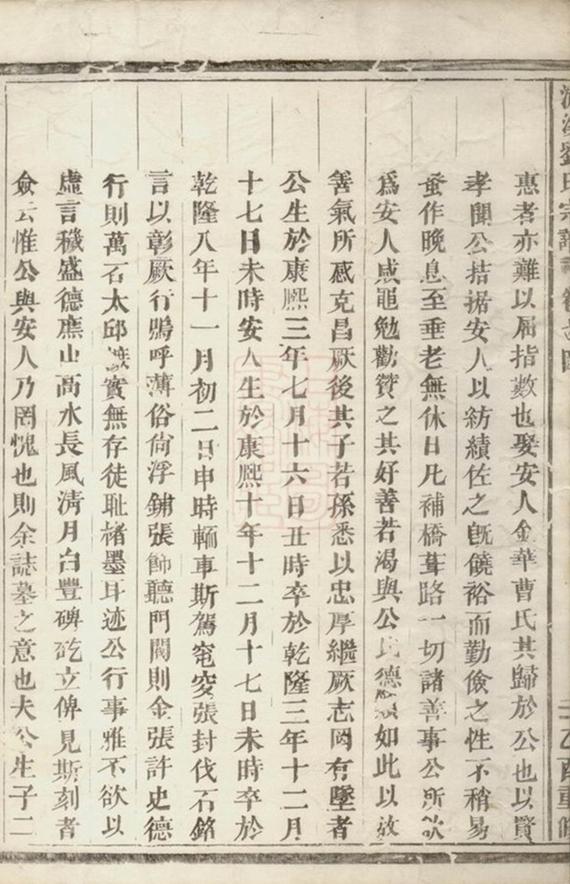 劉氏宗譜
乙酉重脩
惠者亦難以屈指數也娶安人金華曹氏其歸於公也以賢
孝聞公拮据安人以紡績佐之旣饒裕而勤儉之性不稍易
蚤作晚息至垂老無休日凡補橋葺路一切諸善事公所欲
爲安人咸黽勉勸贊之其好善若渴與公氏德如此以故
善氣所感克昌厥後其子若孫悉以忠厚繼厥志罔有墜者
公生於康熙三年七月十六日丑時卒於乾隆三年十二月
十七日未時安人生於康熙十年十二月十七日未時卒於
乾隆八年十一月初二日申時輀車斯駕窀穸張封伐石銘
言以彰厥行嗚呼薄俗尙浮鋪張飾聽門閥則金張許史德
行則萬石太邱實無存徒耻楮墨耳迹公行事雅不欲以
虛言穢盛德應山高水長風淸月白豐碑屹立俾見斯刻者
僉云惟公與安人乃罔愧也則余誌墓之意也夫公生子二